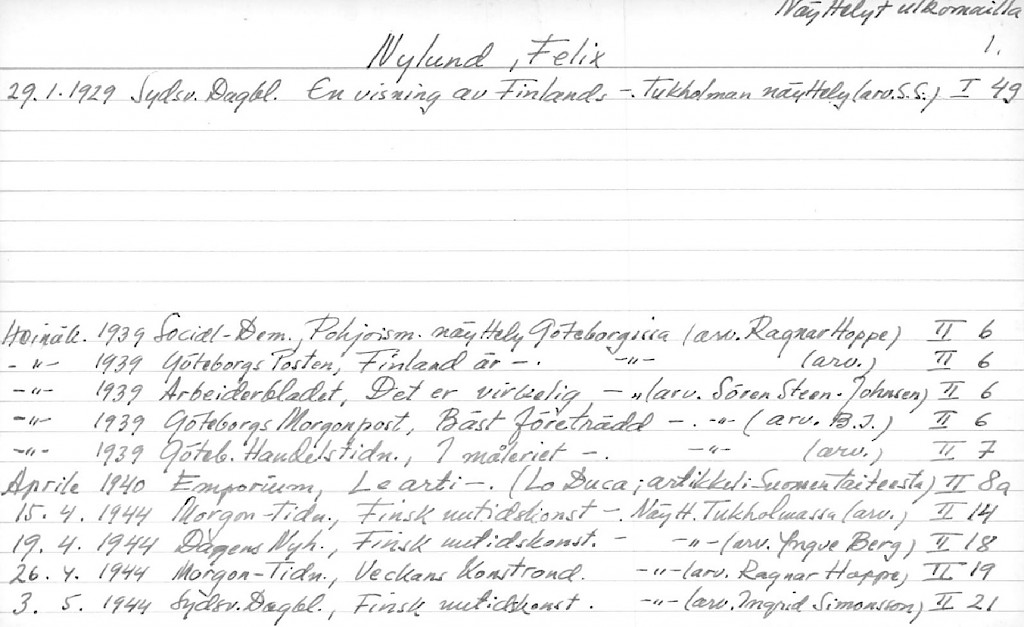 Näyttelyt ulkomailla
1.
Nylund, Felix
29.1.1929 Sydsv. Dagbl. En visning av Finlands -. Tukholman näyttely (arv. S.S.) I 49
Heinäk. 1939 Social-Dem., Pohjoism. näyttely Göteborgissa (arv. Ragnar Hoppe) II 6
-"- 1939 Göteborgs Posten, Finland är -. -"- (arv.) II 6
-"- 1939 Arbeiderbladet, Det er virkelig -"- (arv. Sören Steen-Johnsen) II 6
-"- 1939 Göteborgs Morgonpost, Bäst företrädd -. -"- (arv. B.J.) II 6
-"- 1939 Göteb. Handelstidn., I måleriet -. -"- (arv.) II 7
Aprile 1940 Emporium, Le arti -. (Lo Duca; artikkeli Suomen taiteesta) II 8a
15.4.1944 Morgon-Tidn., Finsk nutidskonst -. Näytt. Tukholmassa (arv.) II 14
19.4.1944 Dagens Nyh., Finsk nutidskonst. - -"- (arv. Yngve Berg) II 18
26.4.1944 Morgon-Tidn., Veckans Konstrond. -"- (arv. Ragnar Hoppe) II 19
3.5.1944 Sydsv. Dagbl., Finsk nutidskonst. -"- (arv. Ingrid Simonsson) II 21